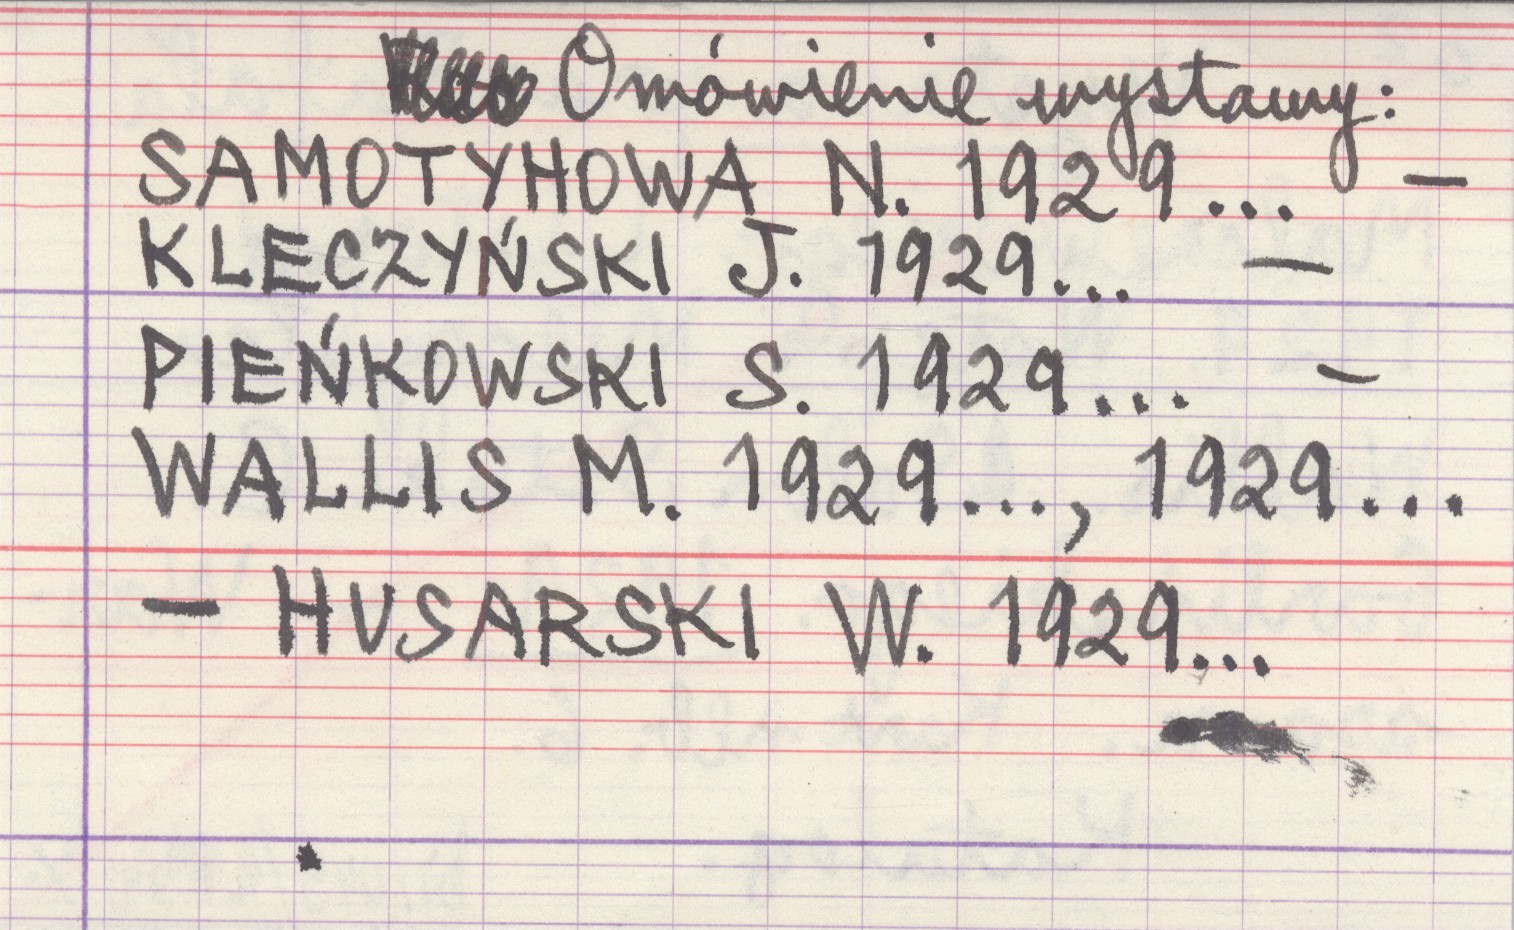 Omówienie wystawy:
SAMOTYHOWA N. 1929... –
KLECZYŃSKI J. 1929... –
PIEŃKOWSKI S. 1929... –
WALLIS M. 1929..., 1929...
– HUSARSKI W. 1929...